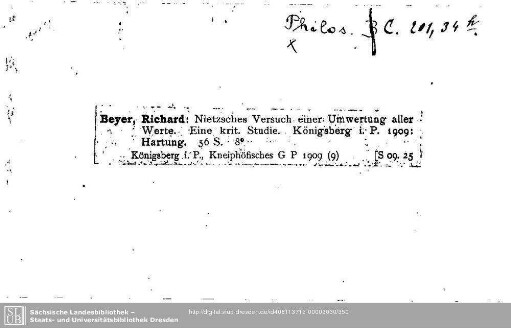 Philos. C. 201, 34
Beyer, Richard: Nietzsches Versuch einer Umwertung aller
Werte. Eine krit. Studie. Königsberg i. P. 1909:
Hartung. 56 S. 8°
Königsberg i. P., Kneiphöfisches G P 1909 (9) [S 09. 25
SLUB
Sächsische Landesbibliothek –
Staats- und Universitätsbibliothek Dresden